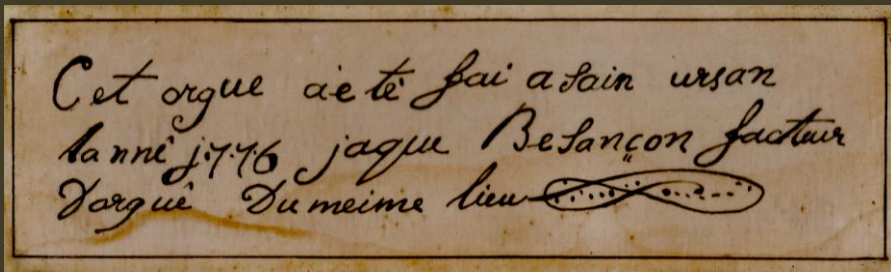 Cet orgue a ete fai a sain ursan
lannê j.7.7.6 jaque Besançon facteur
Dorguê Du meime lieu